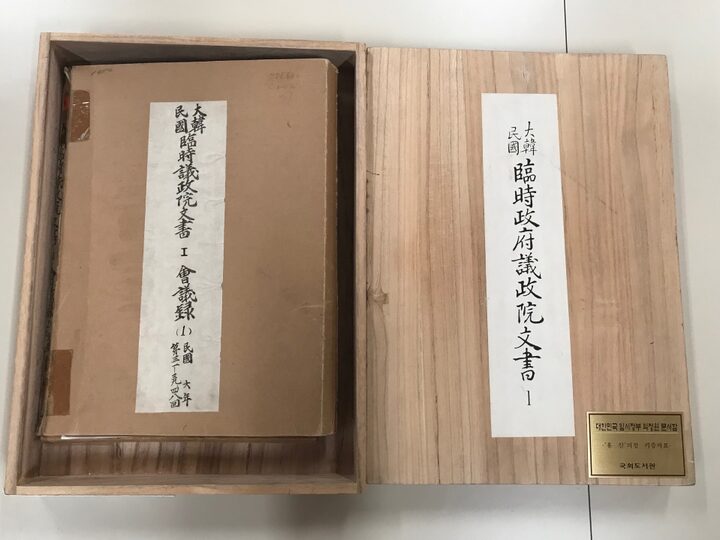 大韓
民國
臨時議政院文書 I 會議録 (1)
民國 六年
大韓
民國
臨時政府議政院文書 I
대한민국 임시정부 의정원 문서함
-'홍 진'의장 기증자료-
국회도서관